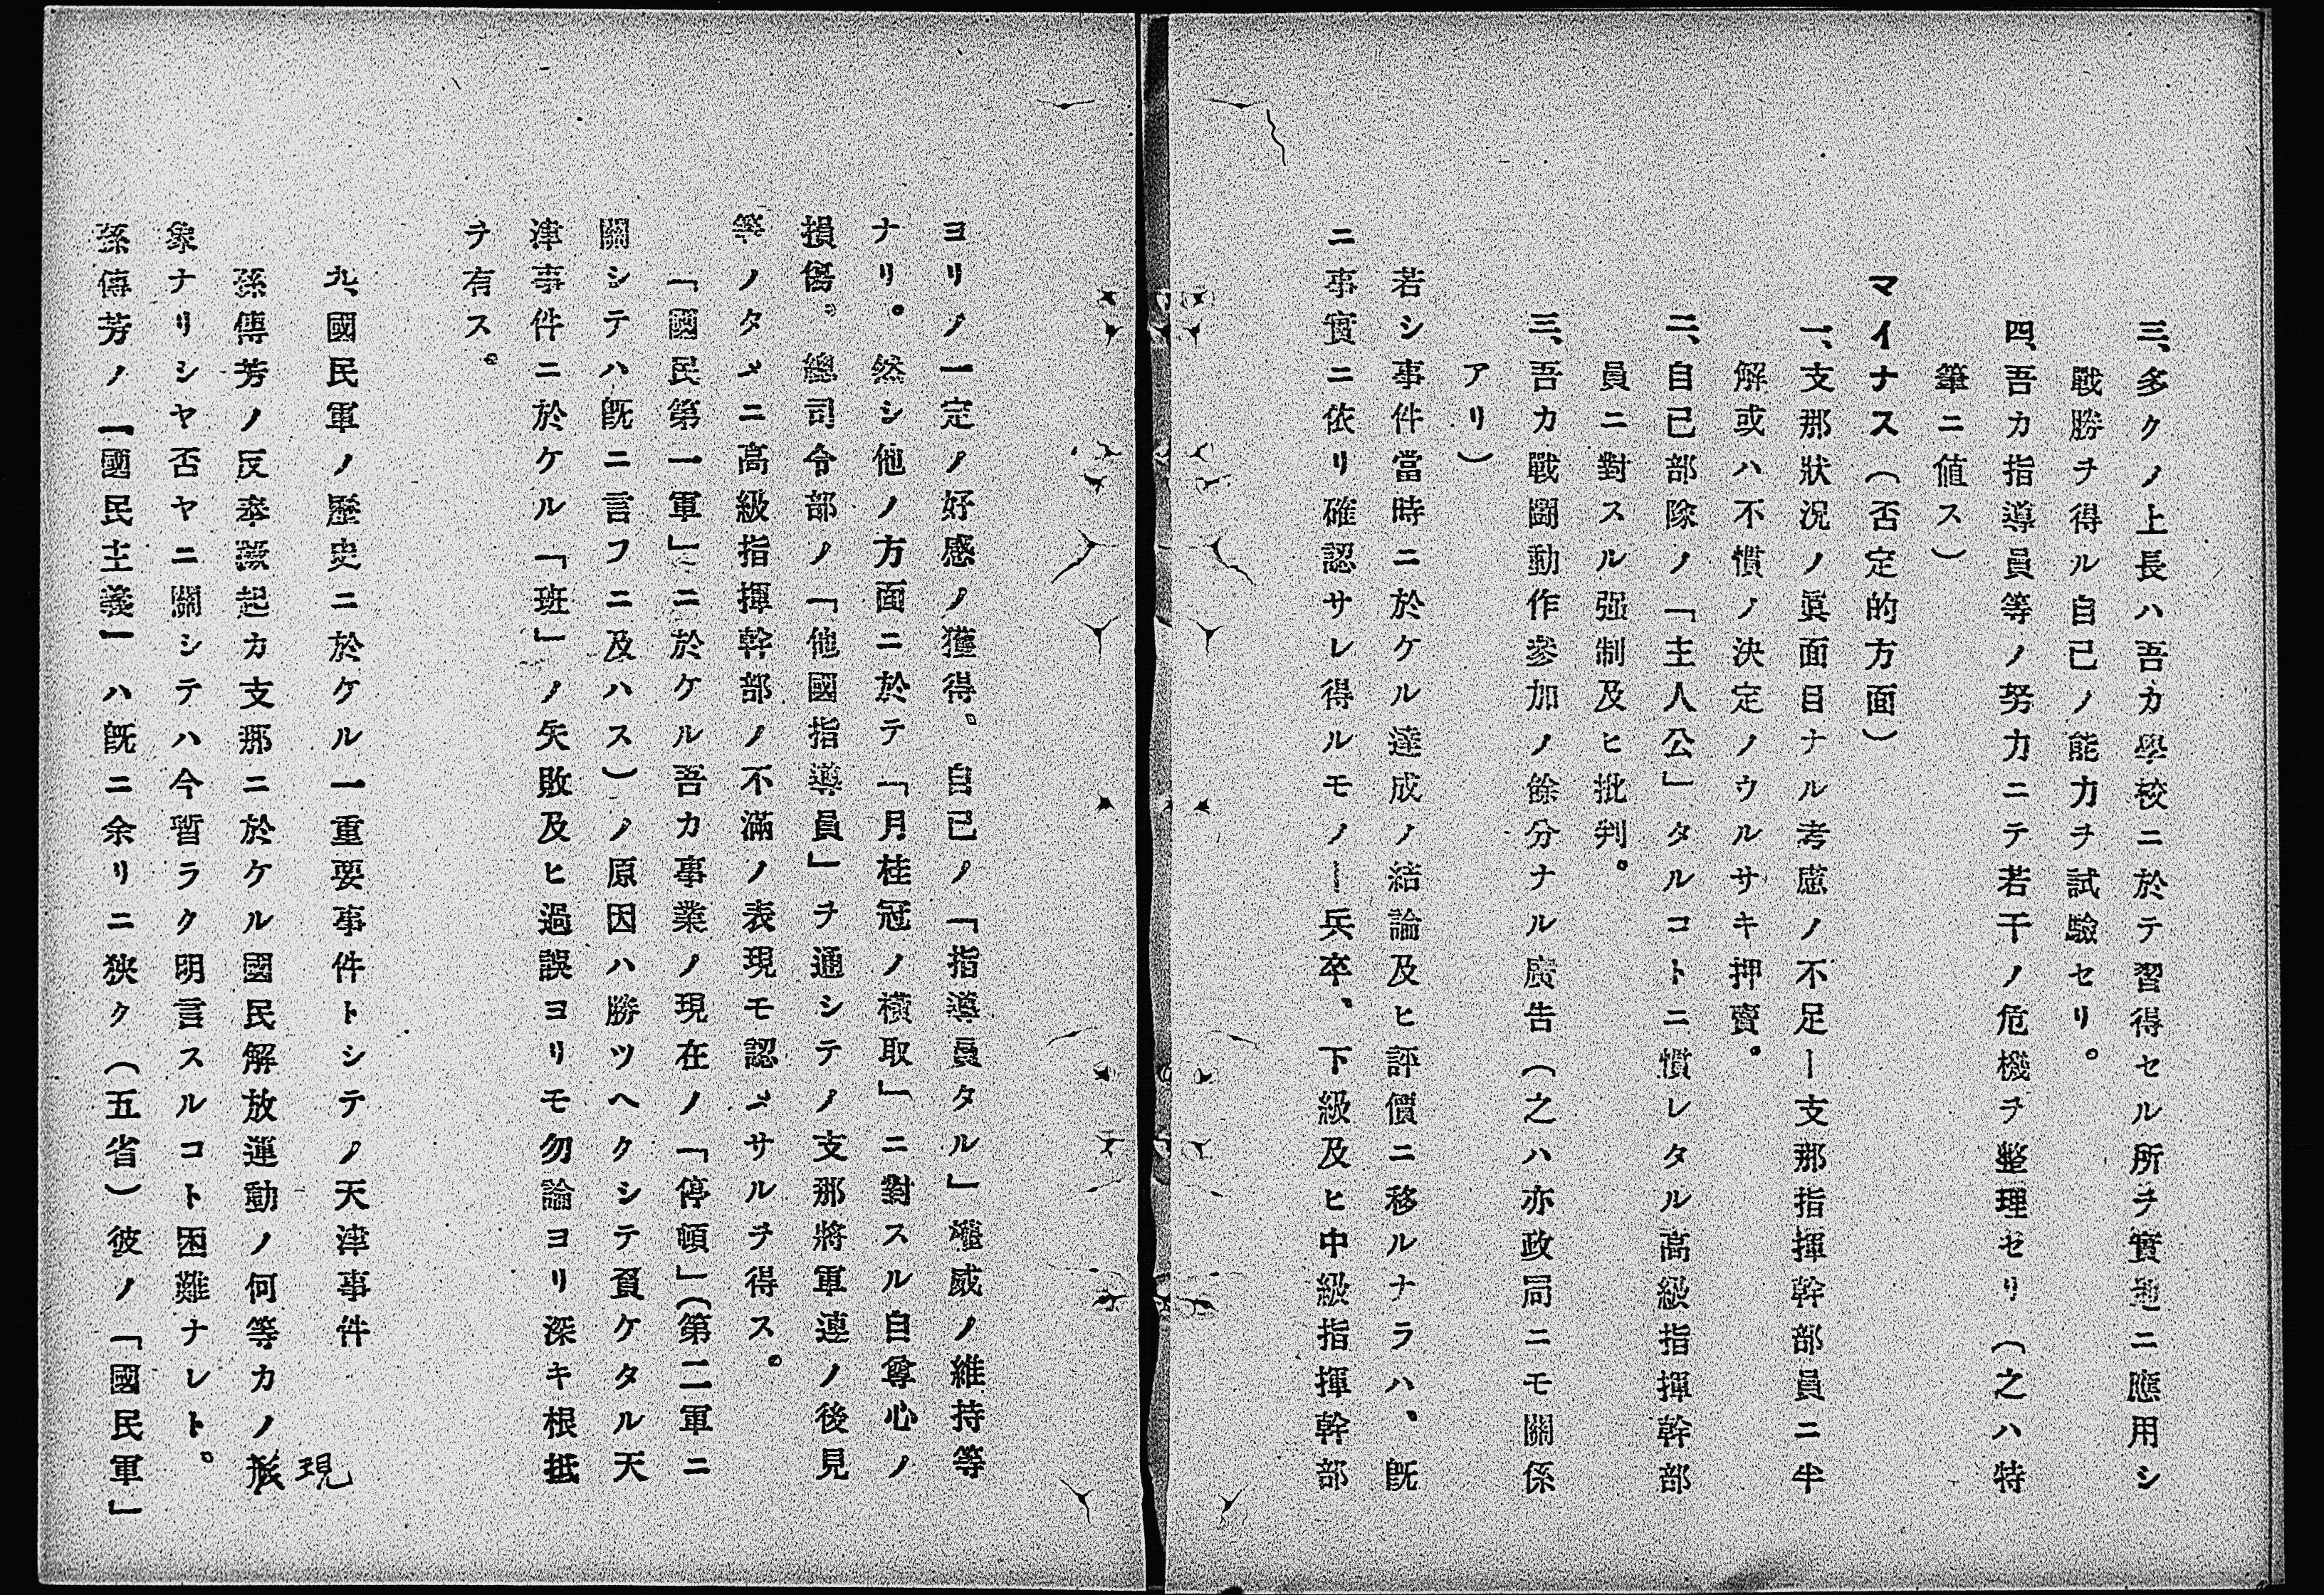 三、多クノ上長ハ吾カ學校ニ於テ習得セル所ヲ實地ニ應用シ
戰勝ヲ得ル自己ノ能力ヲ試驗セリ。
四、吾カ指導員等ノ努力ニテ若干ノ危機ヲ整理セリ（之ハ特
筆ニ値ス）
マイナス（否定的方面）
一、支那狀況ノ眞面目ナル考慮ノ不足ー支那指揮幹部員ニ半
解或ハ不慣ノ決定ノウルサキ押賣。
二、自己部隊ノ「主人公」タルコトニ慣レタル高級指揮幹部
員ニ對スル强制及ヒ批判。
三、吾カ戰鬪動作參加ノ餘分ナル廣告（之ハ亦政局ニモ關係
アリ）
若シ事件當時ニ於ケル達成ノ結論及ヒ評價ニ移ルナラハ、既
ニ事實ニ依リ確認サレ得ルモノー兵卒、下級及ヒ中級指揮幹部
ヨリノ一定ノ好感ノ獲得。自己ノ「指導員タル」權威ノ維持等
ナリ。然シ他ノ方面ニ於テ「月桂冠ノ横取」ニ對スル自尊心ノ
損傷。總司令部ノ「他國指導員」ヲ通シテノ支那將軍連ノ後見
等ノタメニ高級指揮幹部ノ不滿ノ表現モ認メサルヲ得ス。
「國民第一軍」ニ於ケル吾カ事業ノ現在ノ「停頓」（第二軍ニ
關シテハ既ニ言フニ及ハス）ノ原因ハ勝ツヘクシテ負ケタル天
津事件ニ於ケル「班」ノ失敗及ヒ過誤ヨリモ勿論ヨリ深キ根抵
ヲ有ス。
九、國民軍ノ歷史ニ於ケル一重要事件トシテノ天津事件
孫傳芳ノ反奉蹶起カ支那ニ於ケル國民解放運動ノ何等カノ形
現
象ナリシヤ否ヤニ關シテハ今暫ラク明言スルコト困難ナレト。
孫傳芳ノ「國民主義」ハ既ニ余リニ狹ク（五省）彼ノ「國民軍」